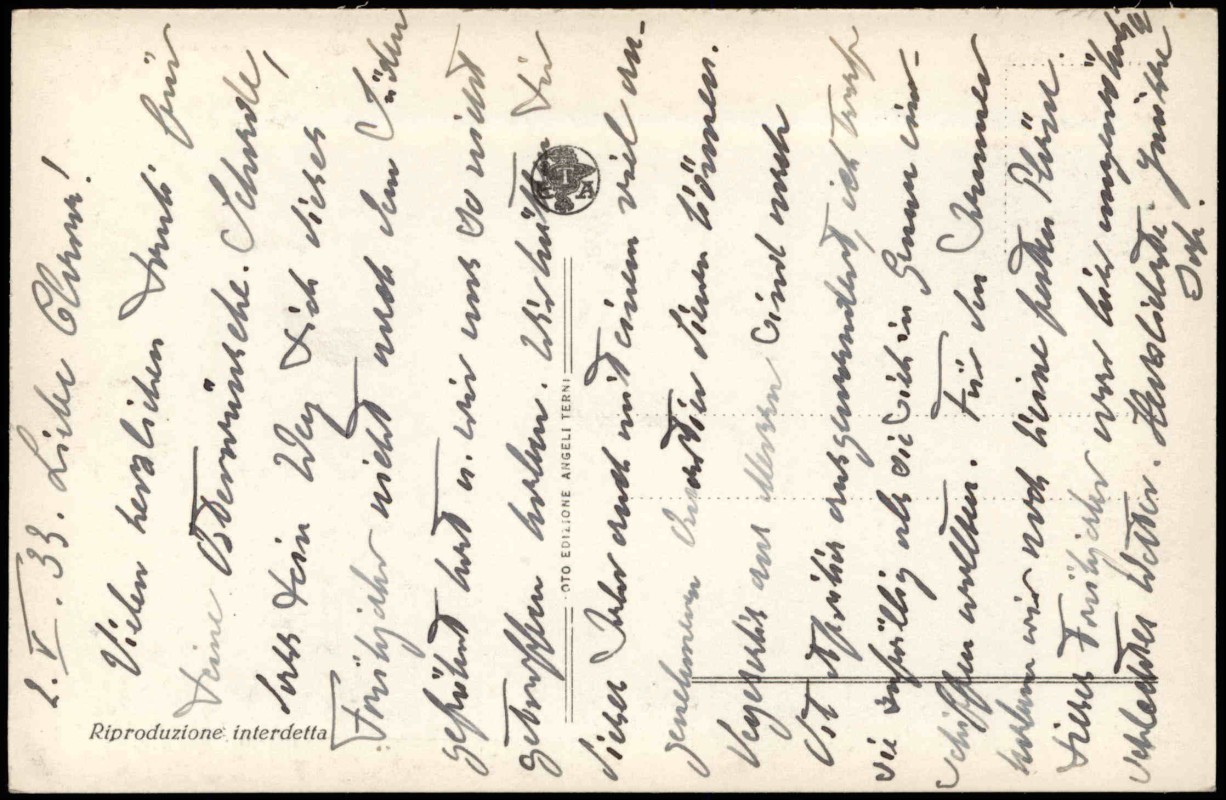 2. V. 33. Liebe Olva!
Vielen herzlichen Dank für
Deine Osterwünsche. Schade,
dass Dein Weg Dich dieses
Frühjahr nicht nach dem Süden
geführt hat u. wir uns so nicht
getroffen haben. Wir hätten Dir
dieses Jahr auch mit einem viel an-
genehmeren dienen können.
Vergesslich aus
Ostafrika ausgewandert, ich traf
sie zufällig als sie sich in Genua ein-
schiffen wollten. Für den Sommer
haben wir noch keine festen Pläne.
Dieses Frühjahr war hier ungewöhnlich
schlechtes Wetter. Herzlichst grüsst
Riproduzione interdetta
FOTO EDIZIONE ANGELI TERNI